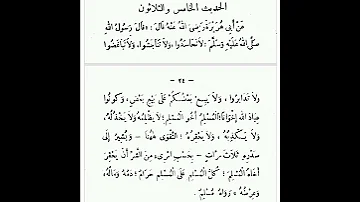 الحديث الخامس والثلاثون
عَنْ أَبِي هُرَيْرَةَ رَضِيَ اللهُ عَنْهُ قَالَ : « قَالَ رَسُولُ اللهِ
صَلَّى اللهُ عَلَيْهِ وَسَلَّمَ : لَا تَحَاسَدُوا، وَلَا تَنَاجَشُوا، وَلَا تَبَاغَضُوا
— ٢٤ —
وَلَا تَدَابَرُوا ، وَلَا يَبِعْ بَعْضُكُمْ عَلَى بَيْعِ بَعْضٍ ، وَكُونُوا
عِبَادَ اللهِ إِخْوَانًا؛ الْمُسْلِمُ أَخُو الْمُسْلِمِ؛ لَا يَظْلِمُهُ وَلَا يَخْذُلُهُ ،
وَلَا يَكْذِبُهُ ، وَلَا يَحْقِرُهُ ؛ التَّقْوَى هٰهُنَا — وَيُشِيرُ إِلَى
صَدْرِهِ ثَلَاثَ مَرَّاتٍ — بِحَسْبِ امْرِئٍ مِنَ الشَّرِّ أَنْ يَحْقِرَ
أَخَاهُ الْمُسْلِمَ ؛ كُلُّ الْمُسْلِمِ عَلَى الْمُسْلِمِ حَرَامٌ؛ دَمُهُ وَمَالُهُ ،
وَعِرْضُهُ » رَوَاهُ مُسْلِمٌ .